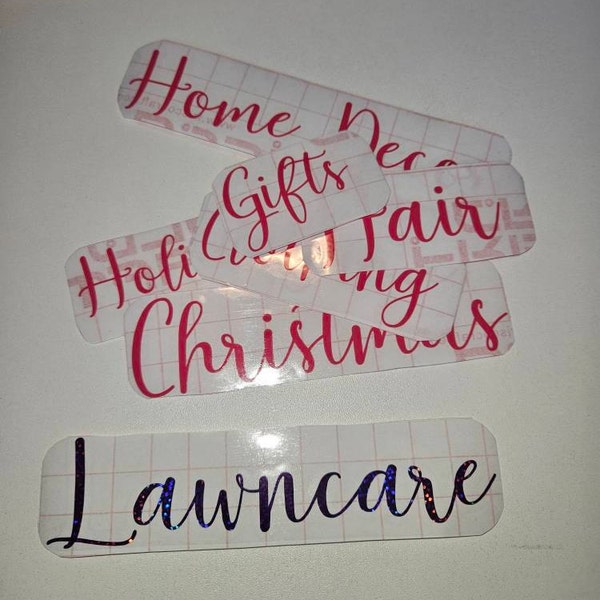 Home Deco
Gifts
Fair
Holi
ing
Christmas
Lawncare